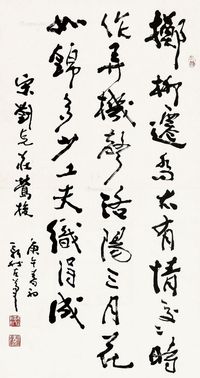 擲柳遷喬太有情交〻時
作弄機聲洛陽三月花
如錦多少工夫織得成
宋劉克莊鶯梭
庚午春初